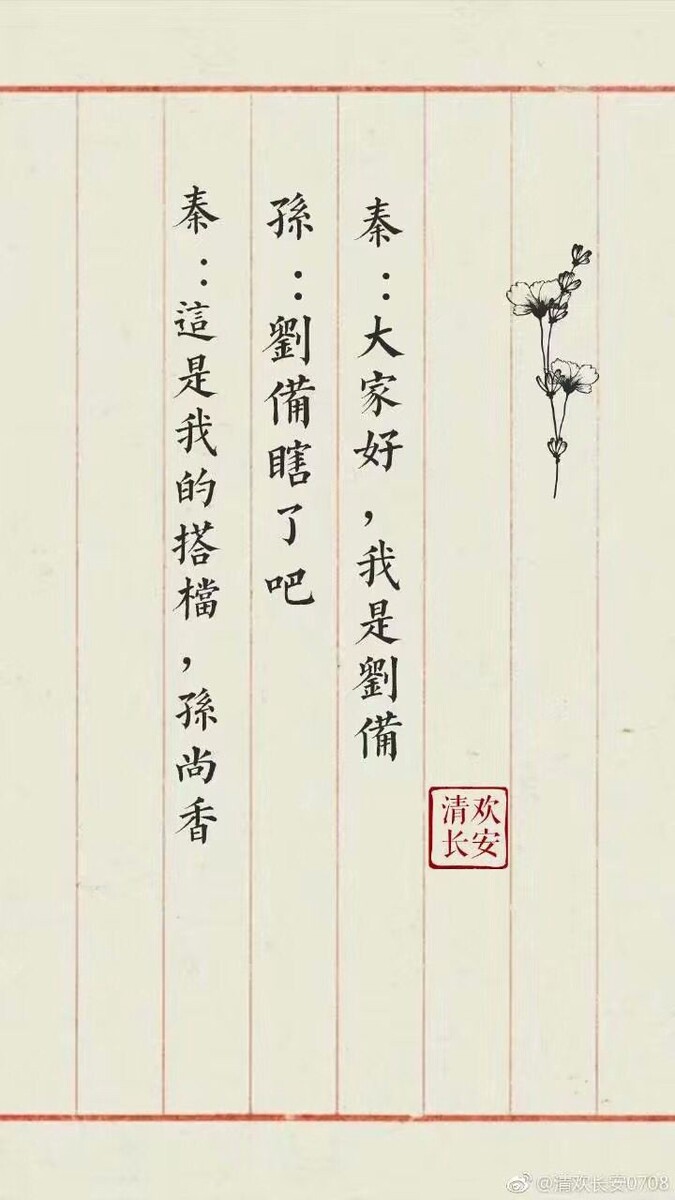 秦：大家好，我是劉備
孫：劉備瞎了吧
秦：這是我的搭檔，孫尚香
清欢
长安
@清欢长安0708